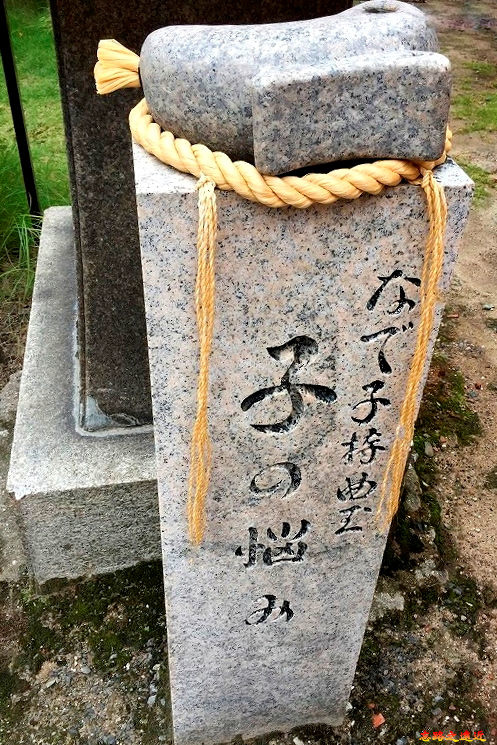 なで子持曲玉
子の悩み